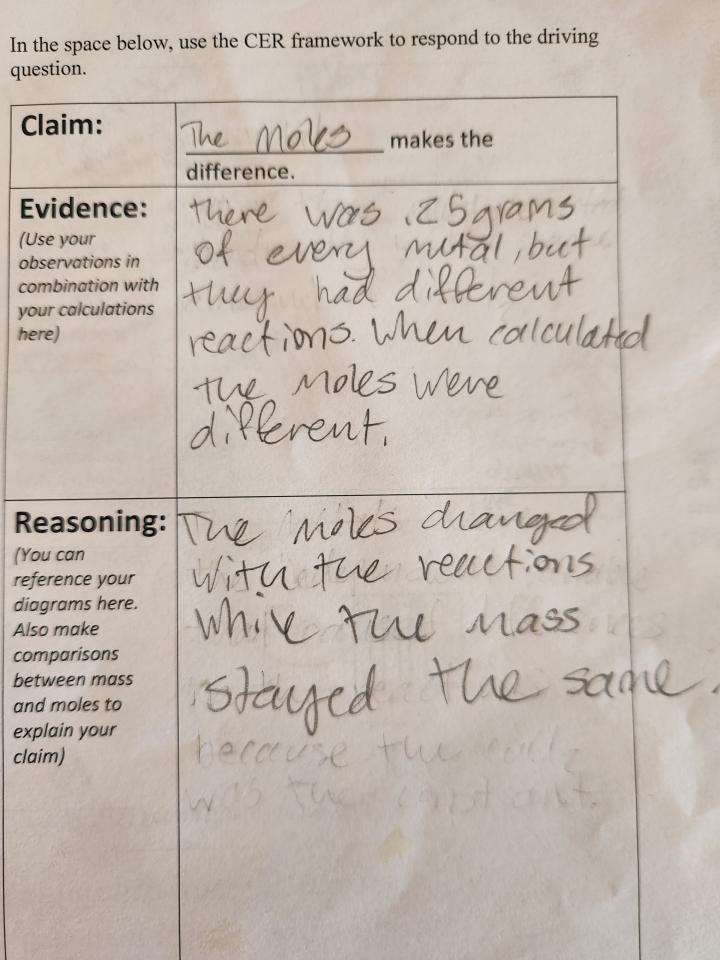 In the space below, use the CER framework to respond to the driving
question.
Claim:
The Moles makes the
difference.
Evidence:
(Use your
observations in
combination with
your calculations
here)
there was .25grams
of every metal, but
they had different
reactions. When calculated
the moles were
different.
Reasoning:
(You can
reference your
diagrams here.
Also make
comparisons
between mass
and moles to
explain your
claim)
The moles changed
with the reactions
while the mass
stayed the same.
because the
was the constant.